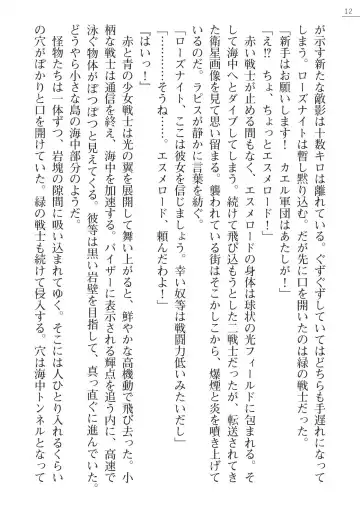 12
が示す新たな敵影は十数キロは離れている。ぐずぐずしていてはどちらも手遅れになって
しまう。ローズナイトは暫し黙り込む。だが先に口を開いたのは緑の戦士だった。
「新手はお願いします！　カエル軍団はあたしが！」
「え⁉　ちょ、ちょっとエスメロード！」
赤い戦士が止める間もなく、エスメロードの身体は球状の光フィールドに包まれる。そ
して海中へとダイブしてしまう。続けて飛び込もうとした二戦士だったが、転送されてき
た衛星画像を見て思い留まる。襲われている街はそこかしこから、爆煙と炎を噴き上げて
いるのだ。ラピスが静かに言葉を紡ぐ。
「ローズナイト、ここは彼女を信じましょう。幸い奴等は戦闘力低いみたいだし」
「……そうね……。エスメロード、頼んだわよ！」
『はいっ！』
赤と青の少女戦士は光の翼を展開して舞い上がると、鮮やかな高機動で飛び去った。小
柄な戦士は通信を終え、海中を加速する。バイザーに表示される輝点を追う内に、高速で
泳ぐ物体がぽつぽつと見えてくる。彼等は黒い岩壁を目指して、真っ直ぐに進んでいた。
どうやら小さな島の海中部分のようだ。
怪物たちは一体ずつ、岩塊の隙間に吸い込まれてゆく。そこには人ひとり入れるくらい
の穴がぽかりと口を開けていた。緑の戦士も続けて侵入する。穴は海中トンネルとなって